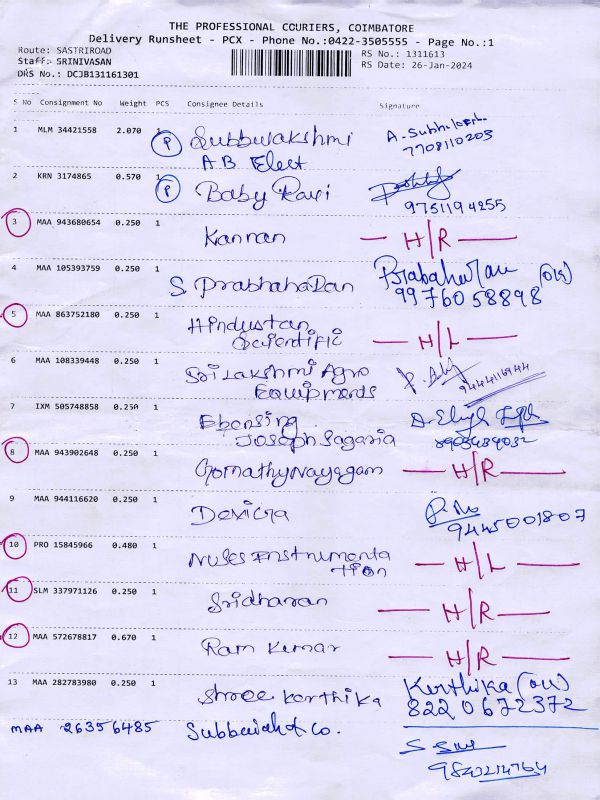 THE PROFESSIONAL COURIERS, COIMBATORE
Delivery Runsheet - PCX - Phone No.:0422-3505555 - Page No.:1
Route: SASTRIROAD
RS No.: 1311613
Staff: SRINIVASAN
RS Date: 26-Jan-2024
DRS No.: DCJB131161301
S No Consignment No Weight PCS Consignee Details Signature
1 MLM 34421558 2.070 P Subbulakshmi
A.B Elect
7708110203
2 KRN 3174865 0.570 P Baby Ravi
9751194255
3 MAA 943680654 0.250 1 Kannan H/R
4 MAA 105393759 0.250 1 S Prabhaharan Prabaharan
9976058898
5 MAA 863752180 0.250 1 Hindustan
Scientific H/L
6 MAA 108339448 0.250 1 Sri Lakshmi Agro
Equipments
9444116944
7 IXM 505748858 0.250 1 Ebensing
Joseph Sagaria
8 MAA 943902648 0.250 1 Gomathynayagam H/R
9 MAA 944116620 0.250 1
9445001807
10 PRO 15845966 0.480 1 Nules Instrumenta
tion H/L
11 SLM 337971126 0.250 1 Sridharan H/R
12 MAA 572678817 0.670 1 Ram Kumar H/R
13 MAA 282783980 0.250 1 Shree Karthika Karthika
8220672372
MAA 26356485 Subbaiah & Co.